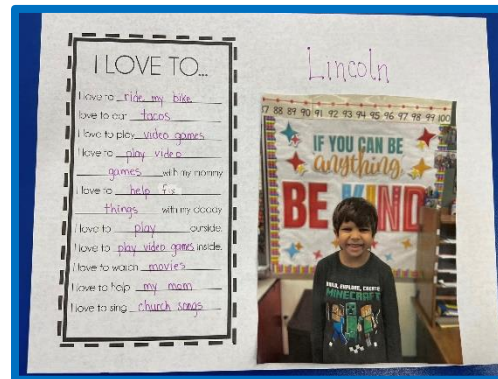 I LOVE TO...
I love to ride my bike
I love to eat tacos
I love to play video games
I love to play video
games with my mommy
I love to help fix
things with my daddy
I love to play outside.
I love to play video games inside.
I love to watch movies
I love to help my mom
I love to sing church songs
Lincoln
87 88 89 90 91 92 93 94 95 96 97 98 99 100
IF YOU CAN BE
anything,
BE KIND
BUILD, EXPLORE, CREATE
MINECRAFT